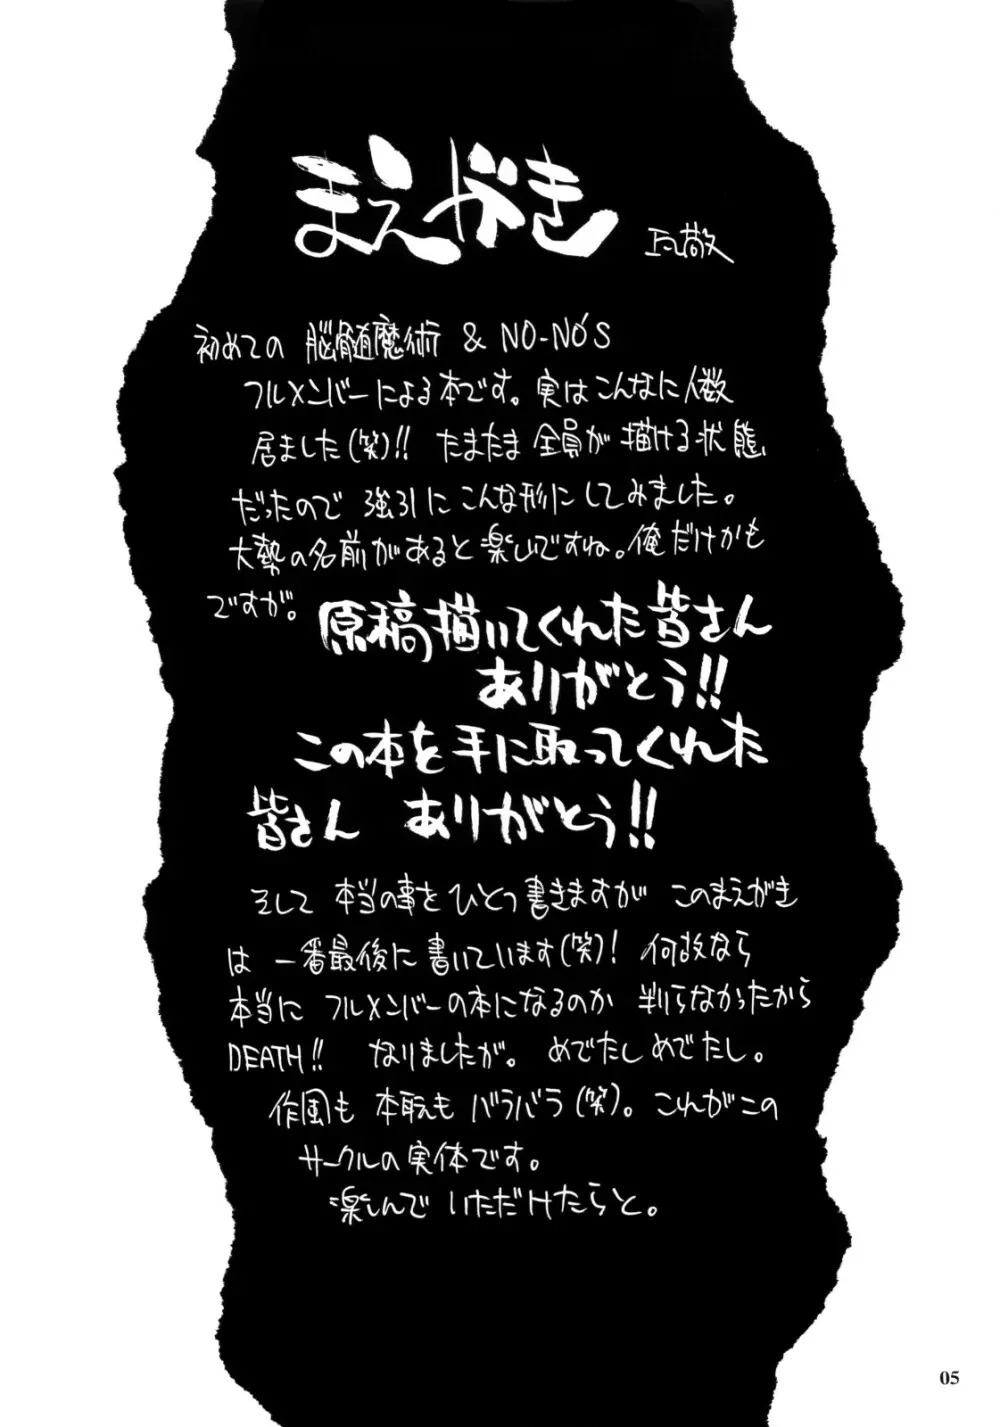 まえがき
初めての 脳髄魔術 & NO-NO'S
フルメンバーによる本です。実はこんなに人数
居ました(笑)!! たまたま全員が描ける状態
だったので 強引にこんな形にしてみました。
大勢の名前があると楽しいですね。俺だけかも
ですが。
原稿描いてくれた皆さん
ありがとう!!
この本を手に取ってくれた
皆さん ありがとう!!
そして 本当の事をひとつ書きますが このまえがき
は 一番最後に書いています(笑)! 何故なら
本当に フルメンバーの本になるのか 判らなかったから
DEATH!! なりましたが。 めでたしめでたし。
作風も 本職も バラバラ(笑)。これがこの
サークルの実体です。
楽しんで いただけたらと。
05